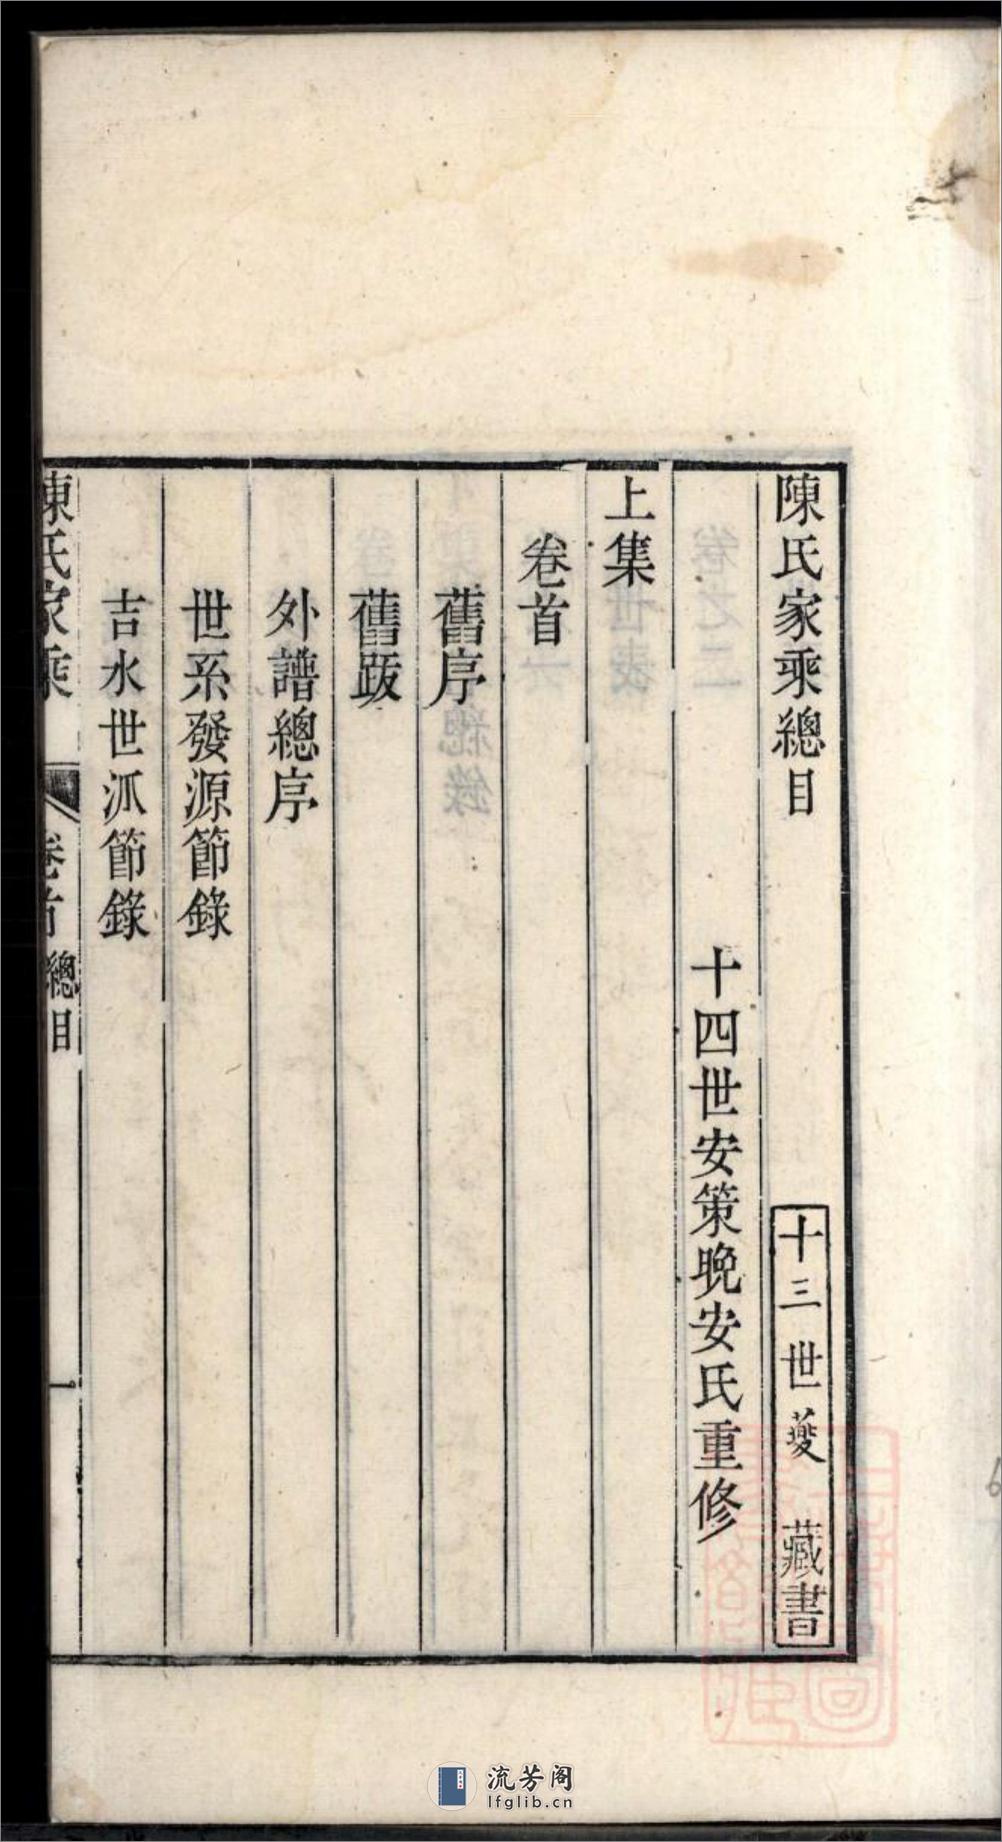 陳氏家乘總目
十三世夔 藏書
十四世安策晚安氏重修
上集
卷首
舊序
舊跋
外譜總序
世系發源節錄
吉水世派節錄
陳氏家乘 卷首 總目 一
流芳阁
lfglib.cn